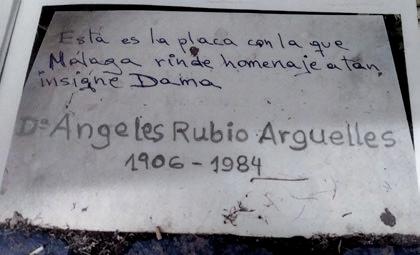 Está es la placa con la que
Málaga rinde homenaje a tan
insigne Dama
Dª Ángeles Rubio Arguelles
1906-1984